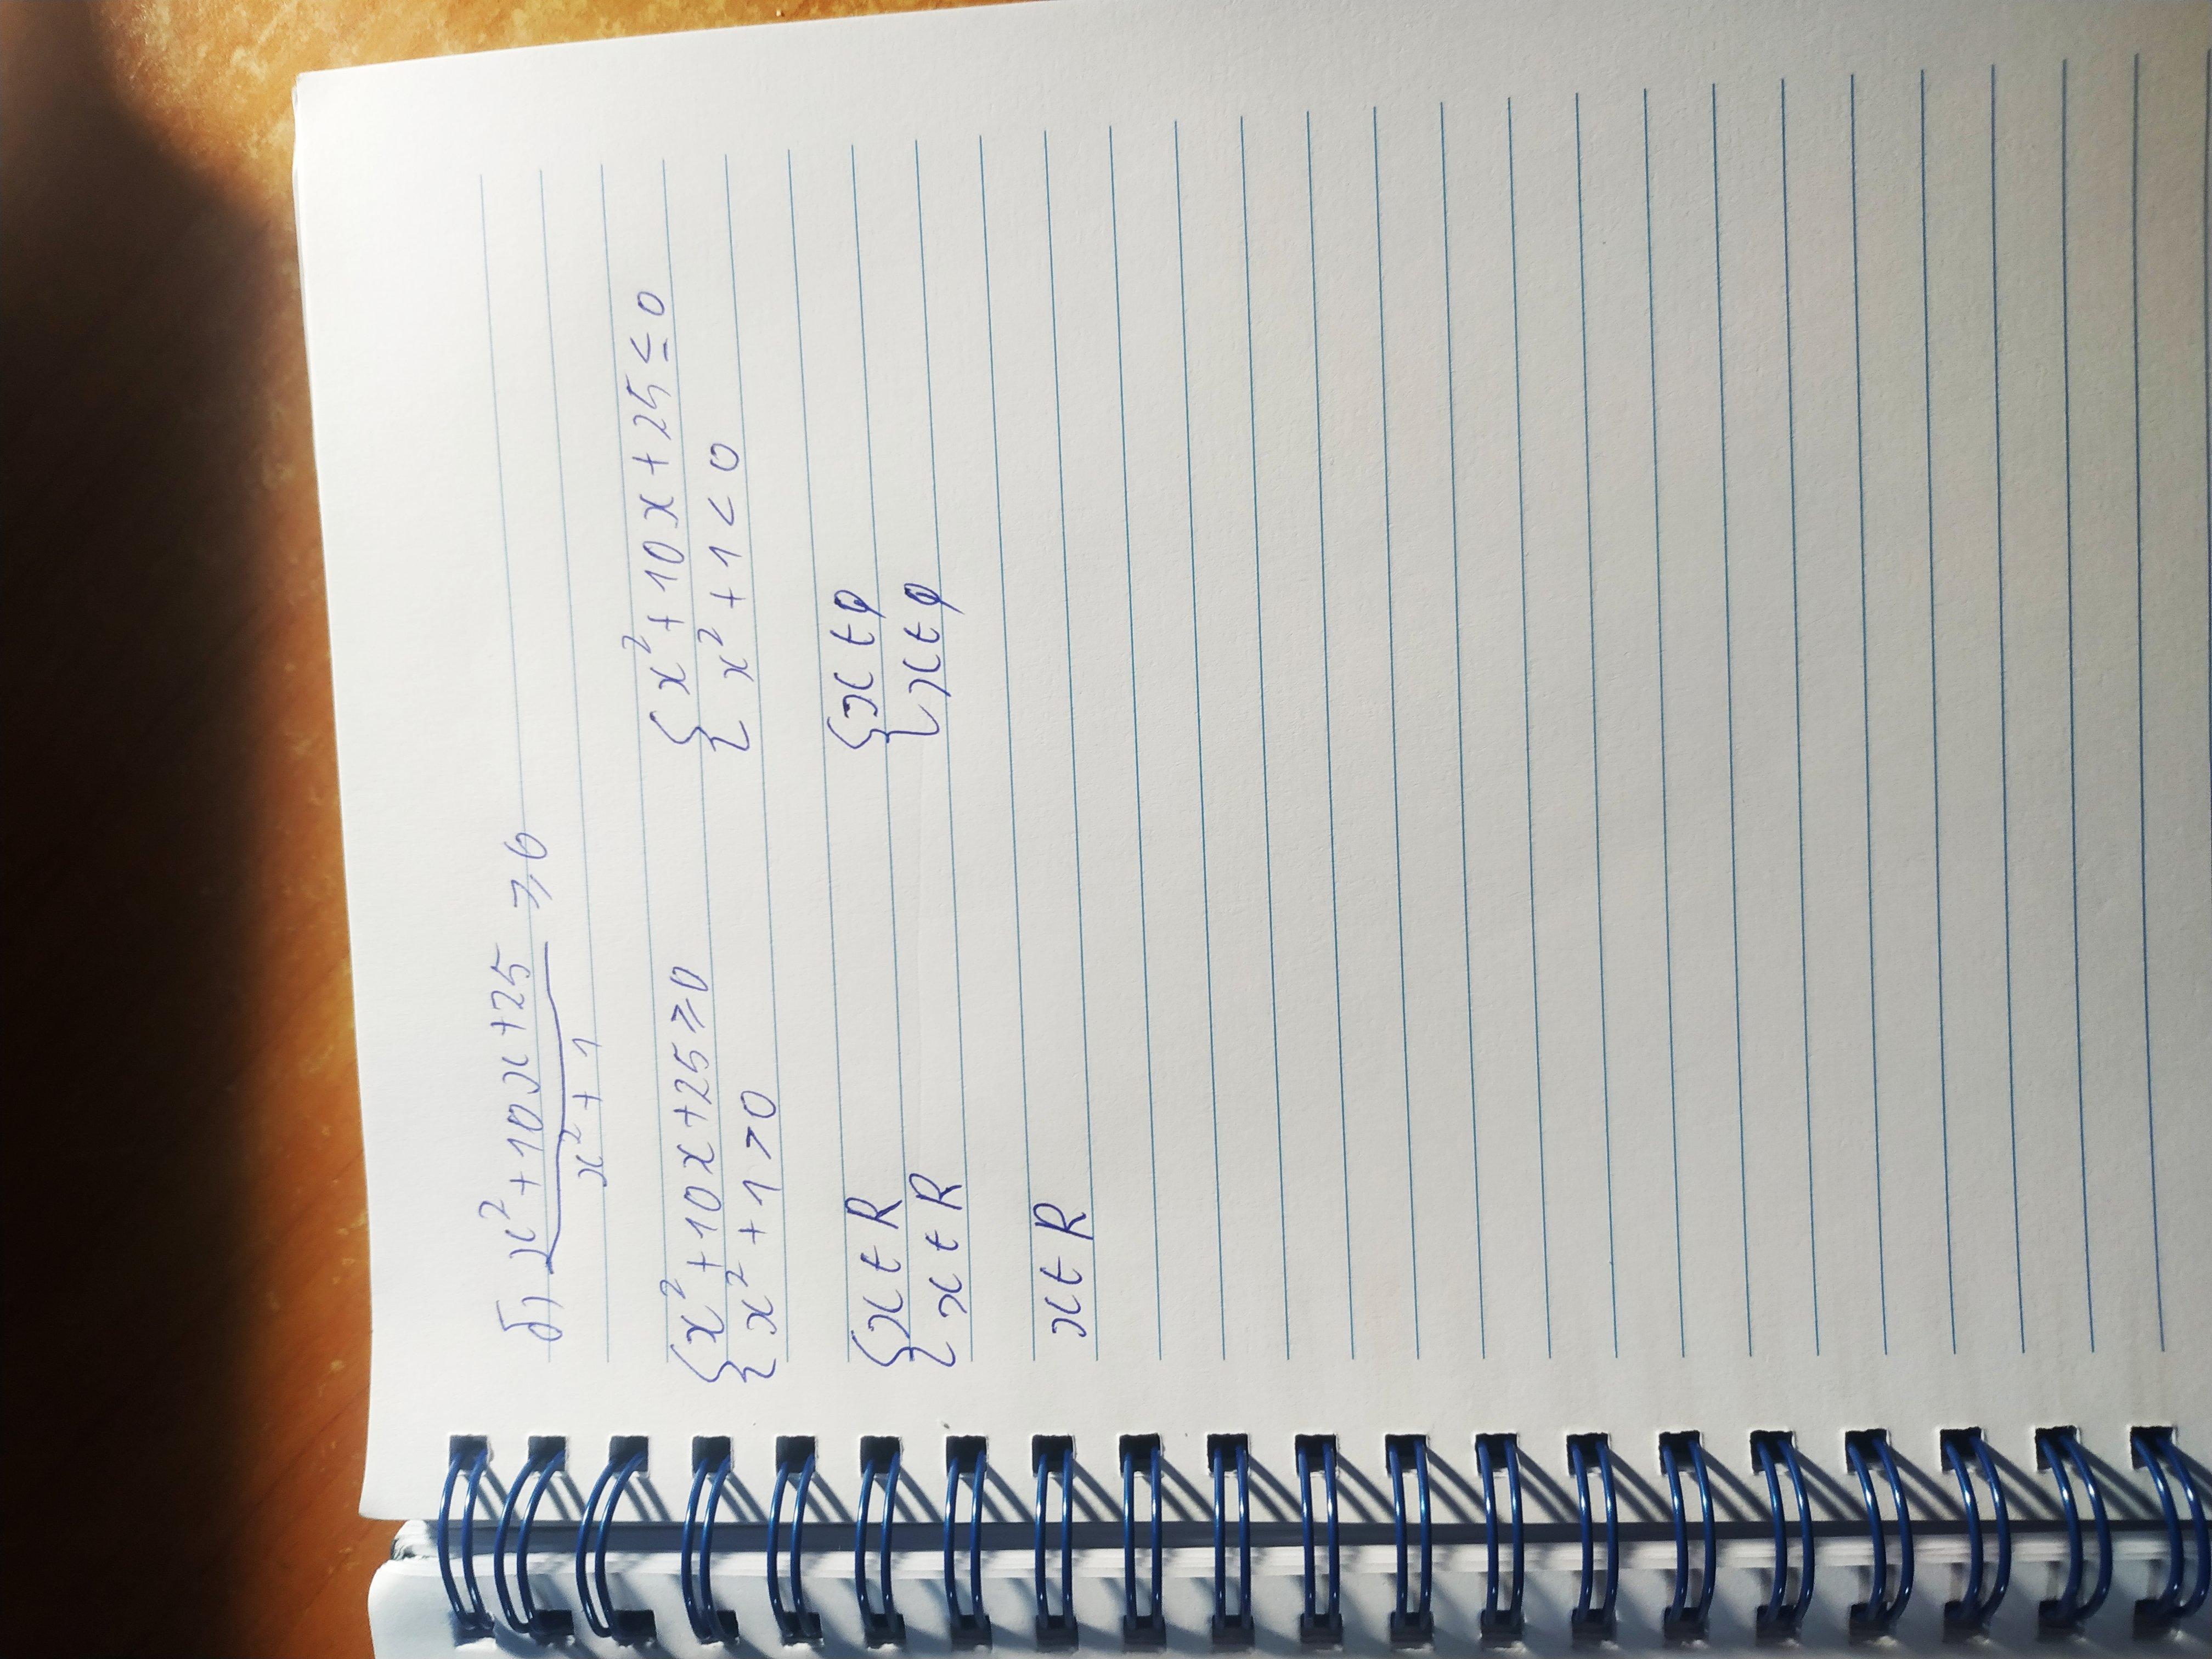 б) x²+10x+25 / x²+1 ⩾ 0
{x²+10x+25⩾0 {x²+10x+25≤0
{x²+1>0 {x²+1<0
{x∈R {x∈∅
{x∈R {x∈∅
x∈R